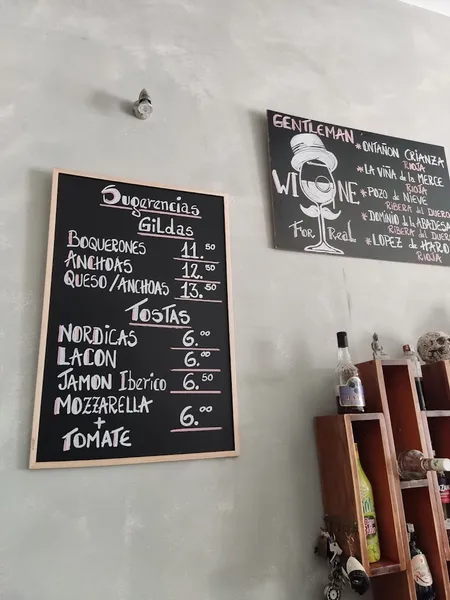 Sugerencias
Gildas
BOQUERONES 11.50
ANCHOAS 12.50
QUESO/ANCHOAS 13.50
TOSTAS
NORDICAS 6.00
LACON 6.00
JAMON IBERICO 6.50
MOZZARELLA
+ 6.00
TOMATE
GENTLEMAN
WINE
For Real
*ONTAÑON CRIANZA
RIOJA
*LA VIÑA de la MERCE
RIOJA
*POZO de NIEVE
RIBERA del DUERO
*DOMINIO d l ABADESA
RIBERA del DUERO
*LOPEZ de HARO
RIOJA